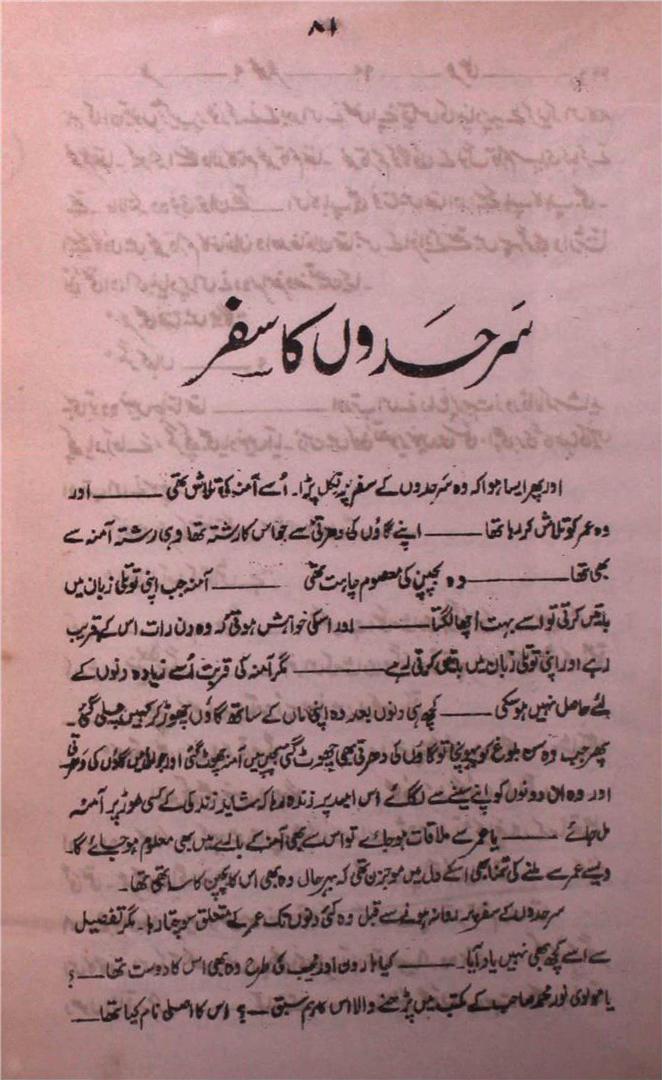 ۸۱
سرحدوں کا سفر
اور پھر ایسا ہوا کہ وہ سرحدوں کے سفر پر نکل پڑا۔ اُسے آمنہ کی تلاش تھی ——— اور
وہ عمر کو تلاش کر رہا تھا ——— اپنے گاؤں کی دھرتی سے جو اس کا رشتہ تھا وہی رشتہ آمنہ سے
بھی تھا ——— وہ بچپن کی معصوم چاہت تھی ——— آمنہ جب اپنی توتلی زبان میں
باتیں کرتی تو اسے بہت اچھا لگتا ——— اور اسکی خواہش ہوتی کہ وہ دن رات اس کے قریب
رہے اور اپنی توتلی زبان میں باتیں کرتی رہے ——— مگر آمنہ کی قربت اُسے زیادہ دنوں کے
لئے حاصل نہیں ہو سکی ——— کچھ ہی دنوں بعد وہ اپنی ماں کے ساتھ گاؤں چھوڑ کر کہیں چلی گئی۔
پھر جب وہ سن بلوغ کو پہونچا تو گاؤں کی دھرتی بھی چھوٹ گئی بچپن میں آمنہ چھوٹ گئی اور جوانی میں گاؤں کی دھرتی
اور وہ ان دونوں کو اپنے سینے سے لگائے اس امید پر زندہ رہا کہ شاید زندگی کے کسی موڑ پر آمنہ
مل جائے ——— یا عمر سے ملاقات ہو جائے تو اس سے بھی آمنہ کے بارے میں بھی معلوم ہو جائے گا۔
ویسے عمر سے ملنے کی تمنا بھی اسکے دل میں موجزن تھی کہ بہرحال وہ بھی اس کا بچپن کا ساتھی تھا۔
سرحدوں کے سفر پر روانہ ہونے سے قبل وہ کئی دنوں تک عمر کے متعلق سوچتا رہا۔ مگر تفصیل
سے اسے کچھ بھی نہیں یاد آیا۔ ——— کیا ہارون اور نجیب کی طرح وہ بھی اس کا دوست تھا ——؟
یا مولوی نور محمد صاحب کے مکتب میں پڑھنے والا اس کا ہم سبق —؟ اس کا اصلی نام کیا تھا —